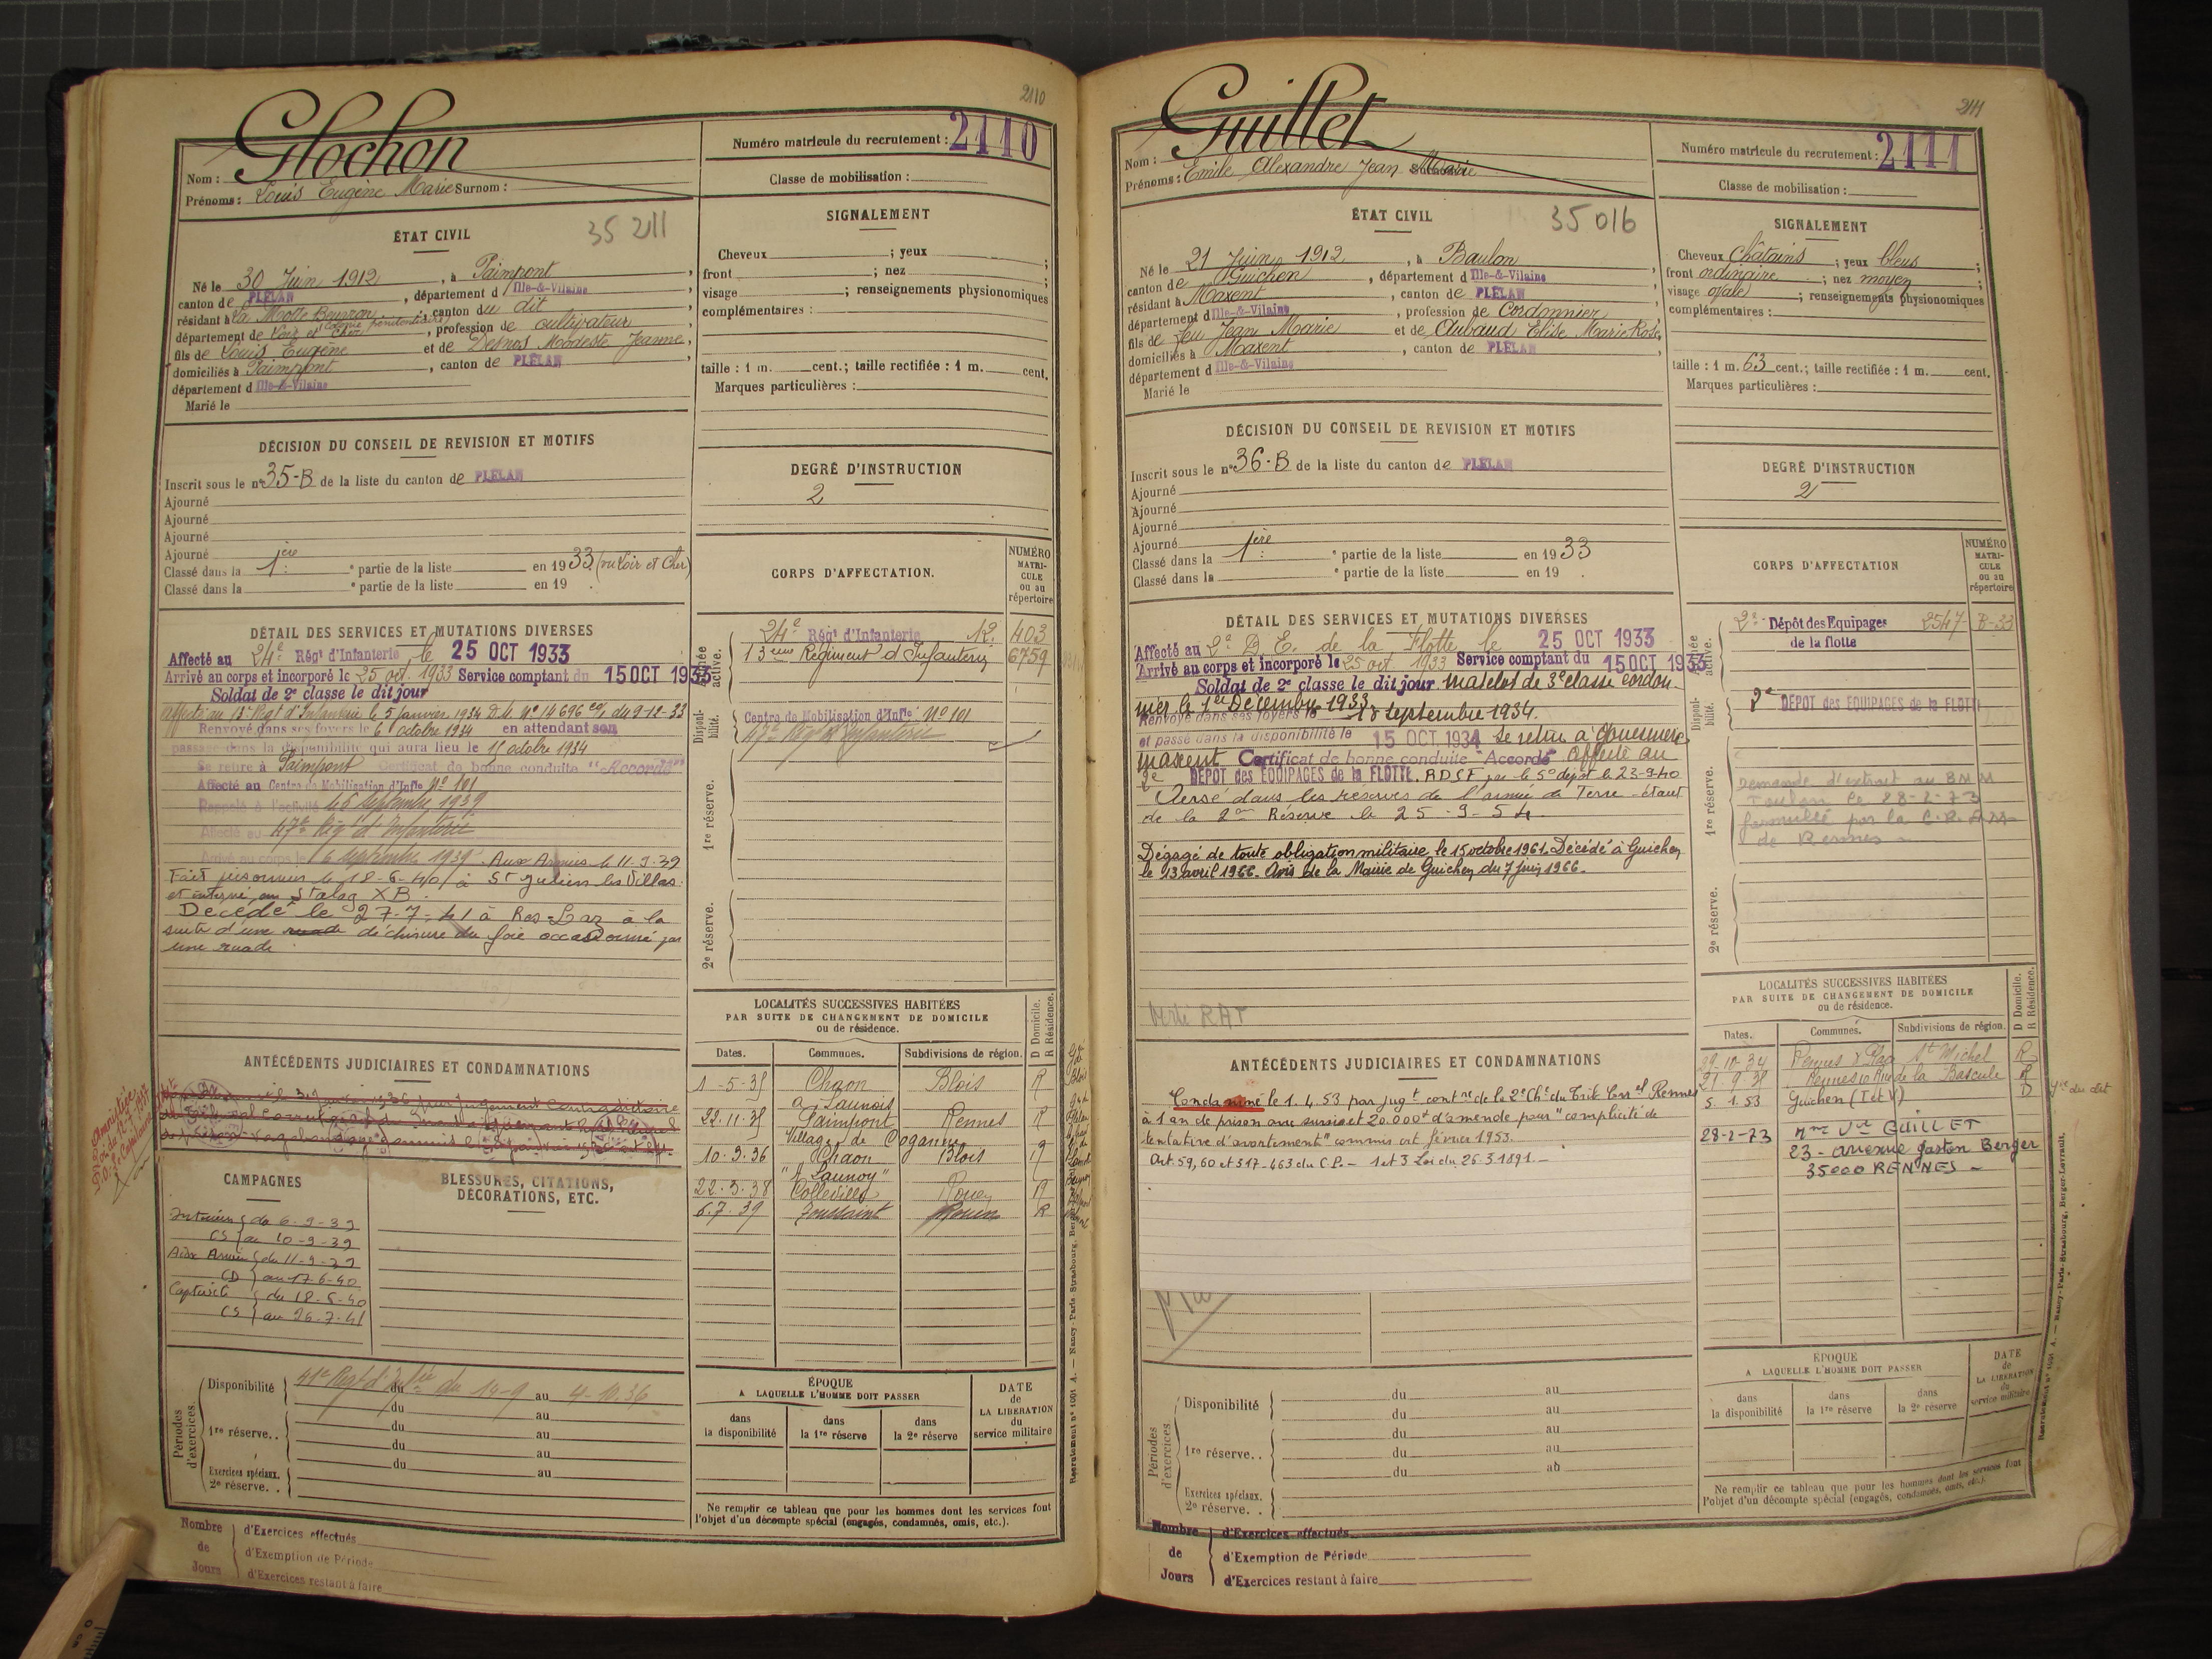 2110
Glochon
Nom :
Prénoms : Louis Eugène Marie Surnom :
Numéro matricule du recrutement : 2110
Classe de mobilisation :
ÉTAT CIVIL
35 211
Né le 30 Juin 1912, à Paimpont,
canton de PLÉLAN, département d'Ille-&-Vilaine
résidant à La Motte Beuvron, canton du dit
(colonie pénitentiaire)
département de Loir et Cher, profession de cultivateur,
fils de Louis Eugène et de Desnos Modeste Jeanne,
domiciliés à Paimpont, canton de PLÉLAN
département d Ille-&-Vilaine
Marié le
SIGNALEMENT
Cheveux ; yeux ;
front ; nez ;
visage ; renseignements physionomiques
complémentaires :
taille : 1 m. cent.; taille rectifiée : 1 m. cent.
Marques particulières :
DÉCISION DU CONSEIL DE REVISION ET MOTIFS
Inscrit sous le n° 35-B de la liste du canton de PLÉLAN
Ajourné
Ajourné
Ajourné
Ajourné
Classé dans la 1ère partie de la liste en 1933 (vu Loir et Cher)
Classé dans la e partie de la liste en 19 .
DEGRÉ D'INSTRUCTION
2
CORPS D'AFFECTATION.
NUMÉRO MATRICULE ou au répertoire
Armée active.
24e Régt d'Infanterie 12. 403
13ème Régiment d'Infanterie 6759
Disponibilité.
Centre de Mobilisation d'Infie N° 101
47e Régt d'Infanterie
1re réserve.
2e réserve.
DÉTAIL DES SERVICES ET MUTATIONS DIVERSES
Affecté au 24e Régt d'Infanterie, le 25 OCT 1933
Arrivé au corps et incorporé le 25 oct. 1933 Service comptant du 15 OCT 1933
Soldat de 2e classe le dit jour
affecté au 13e Régt d'Infanterie le 5 janvier 1934 D.M. N° 14696 du 9-12-33
Renvoyé dans ses foyers le 6 octobre 1934 en attendant son
passage dans la disponibilité qui aura lieu le 15 octobre 1934
Se retire à Paimpont Certificat de bonne conduite "Accordé"
Affecté au Centre de Mobilisation d'Infie N° 101
Rappelé à l'activité le 6 septembre 1939
Affecté au 47e Rég d'Infanterie
Arrivé au corps le 6 septembre 1939. Aux Armées le 11-9-39
Fait prisonnier le 18-6-40 à St Julien les Villas
et interné au Stalag XB.
Décédé le 27-7-41 à Res-Laz à la
suite d'une ruade déchirure du foie occasionné par
une ruade
LOCALITÉS SUCCESSIVES HABITÉES
PAR SUITE DE CHANGEMENT DE DOMICILE
ou de résidence.
D Domicile.
R Résidence.
Dates. Communes. Subdivisions de région.
1-5-35 Chaon Blois R
à Launois
22.11.35 Paimpont Rennes R
Village de Coganne
10.3.36 Chaon Blois R
"à Launoy"
22.3.38 Colleville Rouen R
6.7.39 Toussaint Rouen R
ANTÉCÉDENTS JUDICIAIRES ET CONDAMNATIONS
Amnistié
CAMPAGNES
Intérieur du 6-9-39
CS au 10-9-39
Aux Armées du 11-9-39
CD au 17-6-40
Captivité du 18-6-40
CS au 26-7-41
BLESSURES, CITATIONS,
DÉCORATIONS, ETC.
Périodes d'exercices.
Disponibilité 41e Régt d'Infie du 14-9 au 4-10.36
du au
1re réserve.. du au
du au
du au
Exercices spéciaux.
2e réserve. .
ÉPOQUE
A LAQUELLE L'HOMME DOIT PASSER
dans la disponibilité
dans la 1re réserve
dans la 2e réserve
DATE de LA LIBÉRATION du service militaire
Ne remplir ce tableau que pour les hommes dont les services font
l'objet d'un décompte spécial (engagés, condamnés, omis, etc.).
Nombre de Jours
d'Exercices effectués
d'Exemption de Période
d'Exercices restant à faire
2111
Guillet
Nom :
Prénoms : Emile Alexandre Jean Marie
Numéro matricule du recrutement : 2111
Classe de mobilisation :
ÉTAT CIVIL
35 016
Né le 21 Juin 1912, à Baulon,
canton de Guichen, département d Ille-&-Vilaine
résidant à Maxent, canton de PLÉLAN
département d Ille-&-Vilaine, profession de Cordonnier,
fils de feu Jean Marie et de Aubaud Elise Marie Rose,
domiciliés à Maxent, canton de PLÉLAN
département d Ille-&-Vilaine
Marié le
SIGNALEMENT
Cheveux châtains ; yeux bleus ;
front ordinaire ; nez moyen ;
visage ovale ; renseignements physionomiques
complémentaires :
taille : 1 m. 63 cent.; taille rectifiée : 1 m. cent.
Marques particulières :
DÉCISION DU CONSEIL DE REVISION ET MOTIFS
Inscrit sous le n° 36-B de la liste du canton de PLÉLAN
Ajourné
Ajourné
Ajourné
Ajourné
Classé dans la 1ère partie de la liste en 1933
Classé dans la e partie de la liste en 19 .
DEGRÉ D'INSTRUCTION
2
CORPS D'AFFECTATION
NUMÉRO MATRICULE ou au répertoire
Armée active.
2e Dépôt des Equipages 2547 B-33
de la flotte
Disponibilité.
2e DEPOT des EQUIPAGES de la FLOTTE
1re réserve.
Demande d'extrait au BMM
Toulon le 28-2-73
formulée par la C.R.AM
de Rennes
2e réserve.
DÉTAIL DES SERVICES ET MUTATIONS DIVERSES
Affecté au 2e D E. de la Flotte le 25 OCT 1933
Arrivé au corps et incorporé le 25 oct. 1933 Service comptant du 15 OCT 1933
Soldat de 2e classe le dit jour. matelot de 3e classe cordon-
nier le 1er Décembre 1933.
Renvoyé dans ses foyers le 18 septembre 1934.
et passé dans la disponibilité le 15 OCT 1934 Se retire à
maxent Certificat de bonne conduite "Accordé" Affecté au
2e DEPOT des EQUIPAGES de la FLOTTE. RDSF par le 5e dépôt le 23-9-40
Versé dans les réserves de l'armée de Terre - étant
de la 2me Réserve le 25-9-54.
Dégagé de toute obligation militaire le 15 octobre 1961. Décédé à Guichen
le 13 avril 1966. Avis de la Mairie de Guichen du 7 juin 1966.
RAT
LOCALITÉS SUCCESSIVES HABITÉES
PAR SUITE DE CHANGEMENT DE DOMICILE
ou de résidence.
D Domicile.
R Résidence.
Dates. Communes. Subdivisions de région.
29-10-34 Rennes 8 Place St Michel R
21.9.38 Rennes 10 Rue de la Bascule R
5.1.53 Guichen (I et V) D
28-2-73 Mme Vve GUILLET
23 - avenue Gaston Berger
35000 RENNES -
ANTÉCÉDENTS JUDICIAIRES ET CONDAMNATIONS
Condamné le 1.4.53 par jugt contre de la 2e Che du Trib Correl Rennes
à 1 an de prison avec sursis et 20.000f d'amende pour "complicité de
tentative d'avortement" commis ent février 1953.
Art. 59, 60 et 317-463 du C.P. - 1 et 3 Loi du 26.3.1891.-
Périodes d'exercices.
Disponibilité du au
du au
1re réserve. . du au
du au
du au
Exercices spéciaux.
2e réserve. .
ÉPOQUE
A LAQUELLE L'HOMME DOIT PASSER
dans la disponibilité
dans la 1re réserve
dans la 2e réserve
DATE de LA LIBÉRATION du service militaire
Ne remplir ce tableau que pour les hommes dont les services font
l'objet d'un décompte spécial (engagés, condamnés, omis, etc.).
Nombre de Jours
d'Exercices effectués
d'Exemption de Période
d'Exercices restant à faire